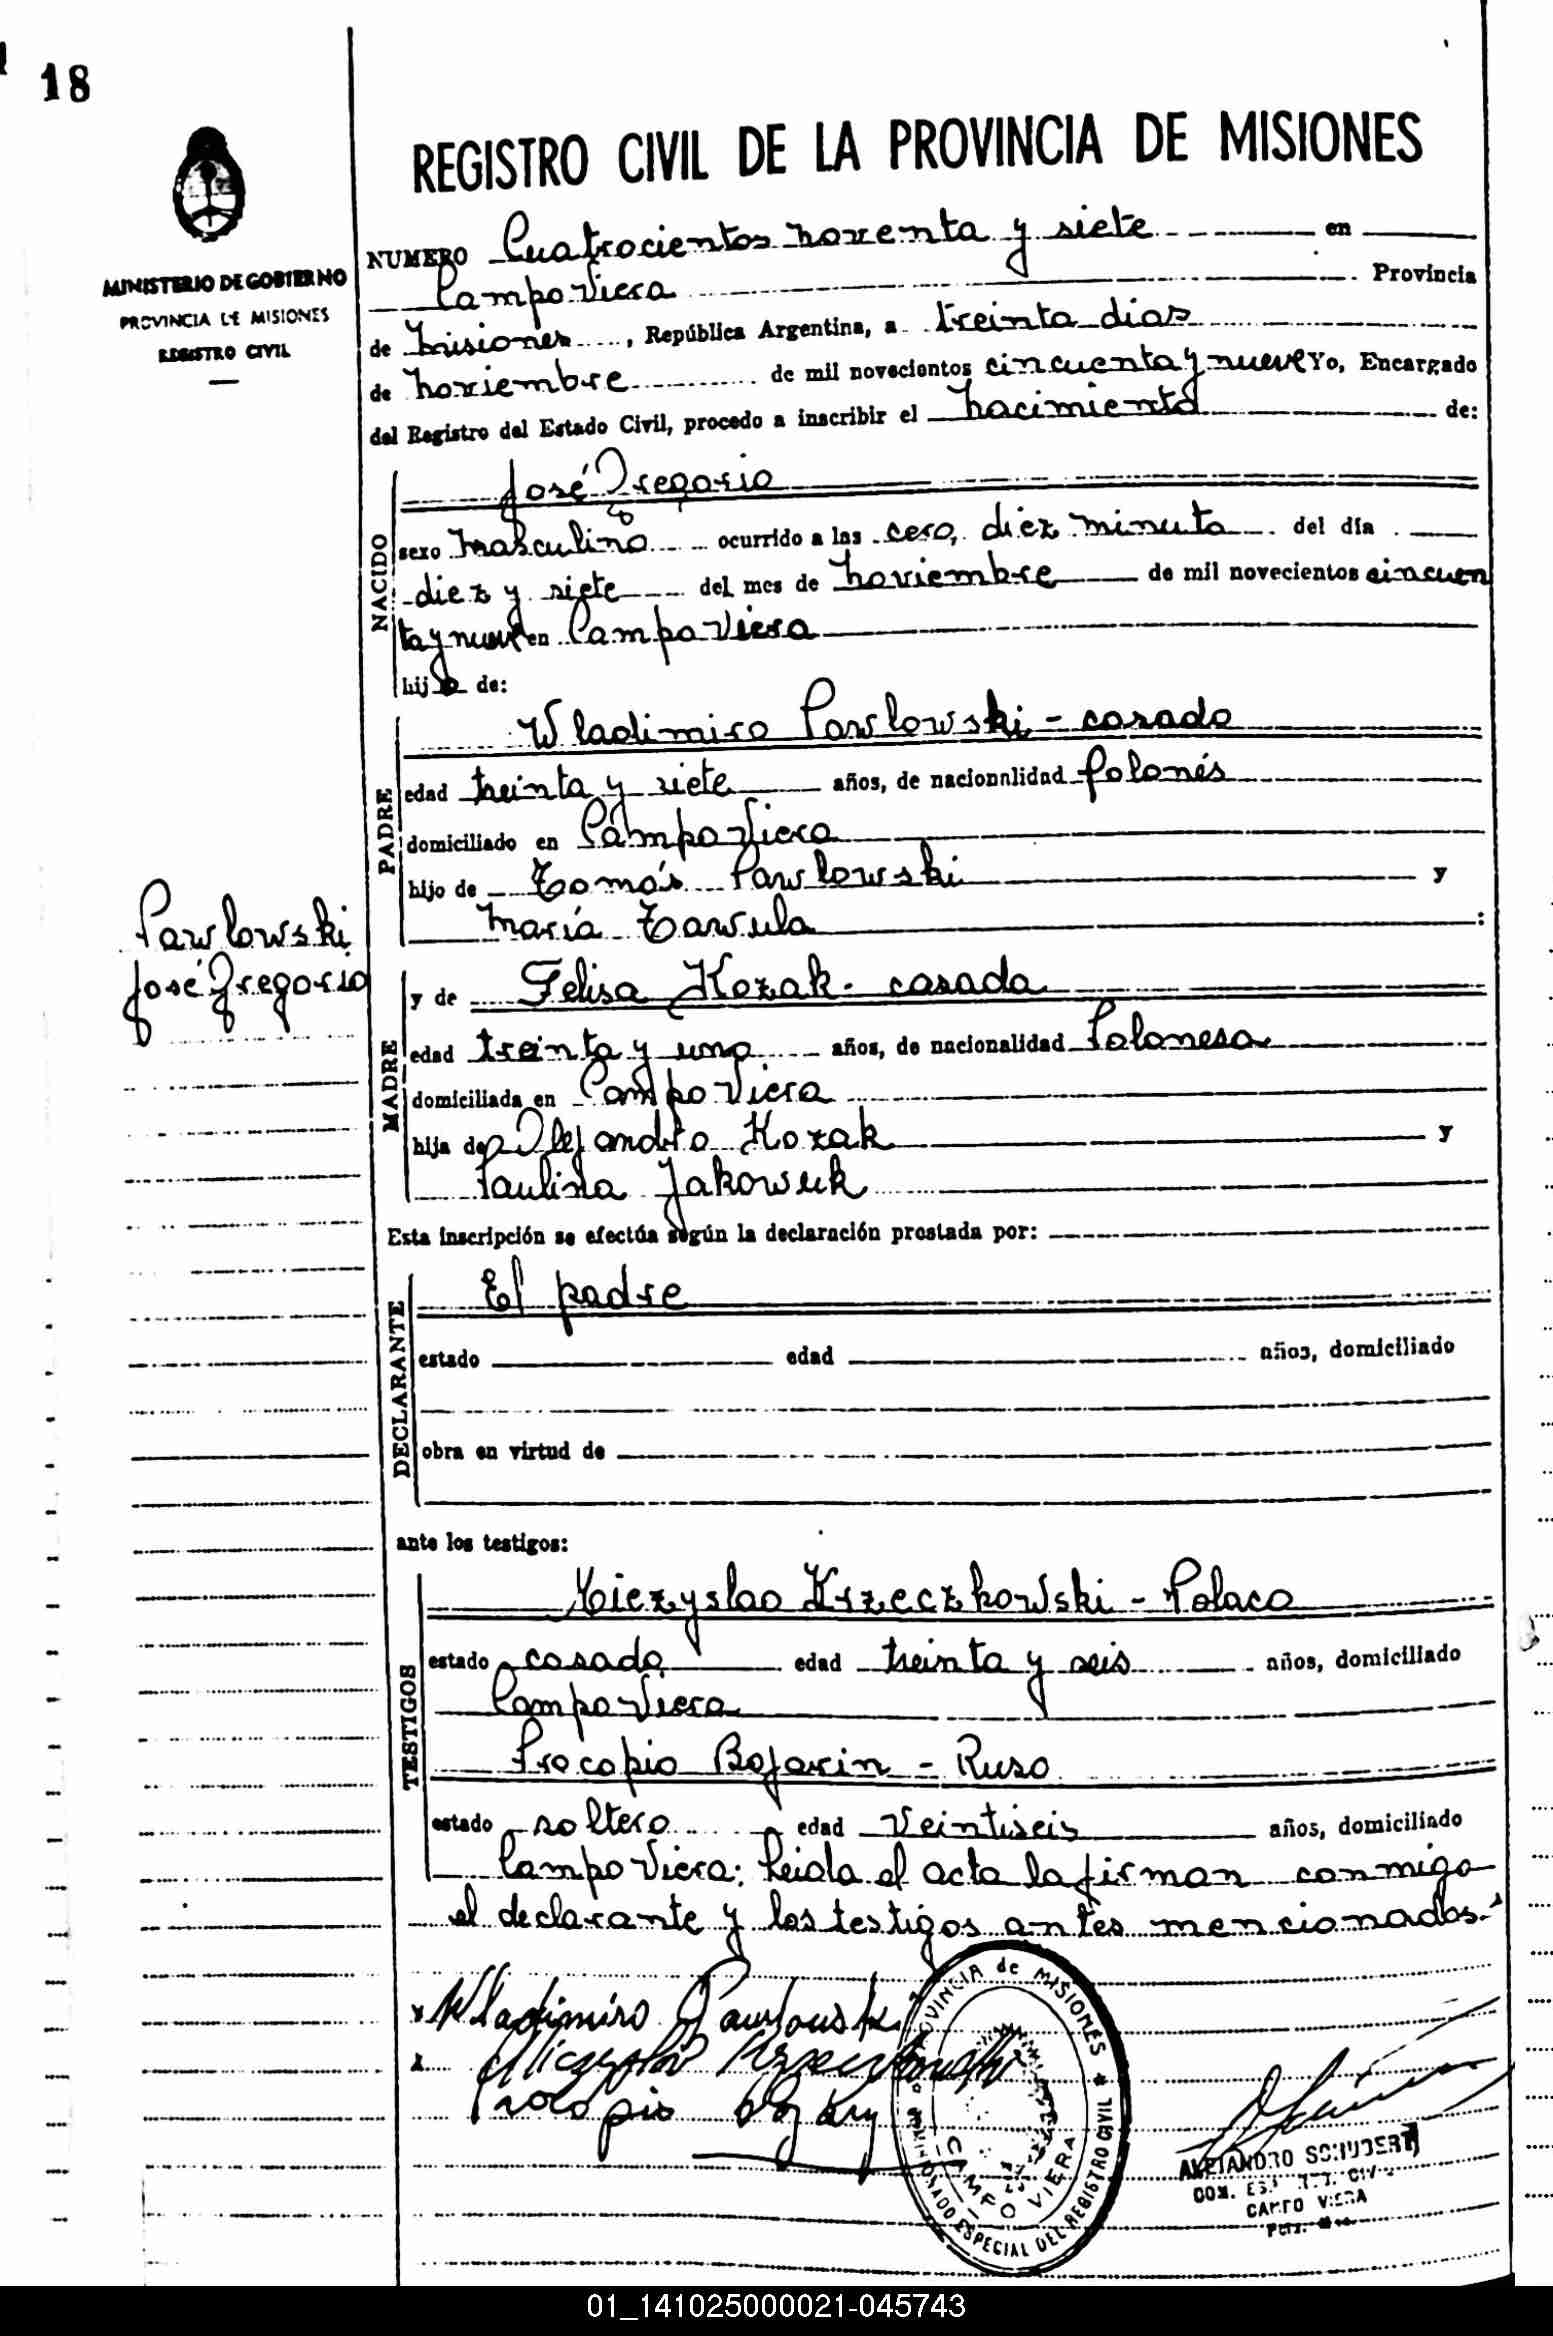 18
MINISTERIO DE GOBIERNO
PROVINCIA DE MISIONES
REGISTRO CIVIL
REGISTRO CIVIL DE LA PROVINCIA DE MISIONES
NUMERO Cuatrocientos noventa y siete en
Campo Viera Provincia
de Misiones , República Argentina, a treinta dias
de noviembre de mil novecientos cincuenta y nueve Yo, Encargado
del Registro del Estado Civil, procedo a inscribir el nacimiento de:
NACIDO
José Gregorio
sexo masculino ocurrido a las cero, diez minuto del día
diez y siete del mes de noviembre de mil novecientos cincuen
ta y nueve en Campo Viera
hijo de:
PADRE
Wladimiro Pawlowski - casado
edad treinta y siete años, de nacionalidad Polonés
domiciliado en Campo Viera
hijo de Tomás Pawlowski y
María Tawula :
Pawlowski
José Gregorio
MADRE
y de Felisa Kozak - casada
edad treinta y uno años, de nacionalidad Polonesa
domiciliada en Campo Viera
hija de Alejandro Kozak y
Paulina Jakowuk
Esta inscripción se efectúa según la declaración prestada por:
DECLARANTE
El padre
estado edad años, domiciliado
obra en virtud de
ante los testigos:
TESTIGOS
Miezyslao Krzeczkowski - Polaco
estado casado edad treinta y seis años, domiciliado
Campo Viera
Procopio Bojarin - Ruso
estado soltero edad veintiseis años, domiciliado
Campo Viera: Leida el acta la firman conmigo
el declarante y los testigos antes mencionados.-
x Wladimiro Pawlouski
x
Procopio
PROVINCIA de MISIONES
ESPECIAL DEL REGISTRO CIVIL
CAMPO VIERA
ALEJANDRO SCHUBERT
CAMPO VIERA
01_141025000021-045743